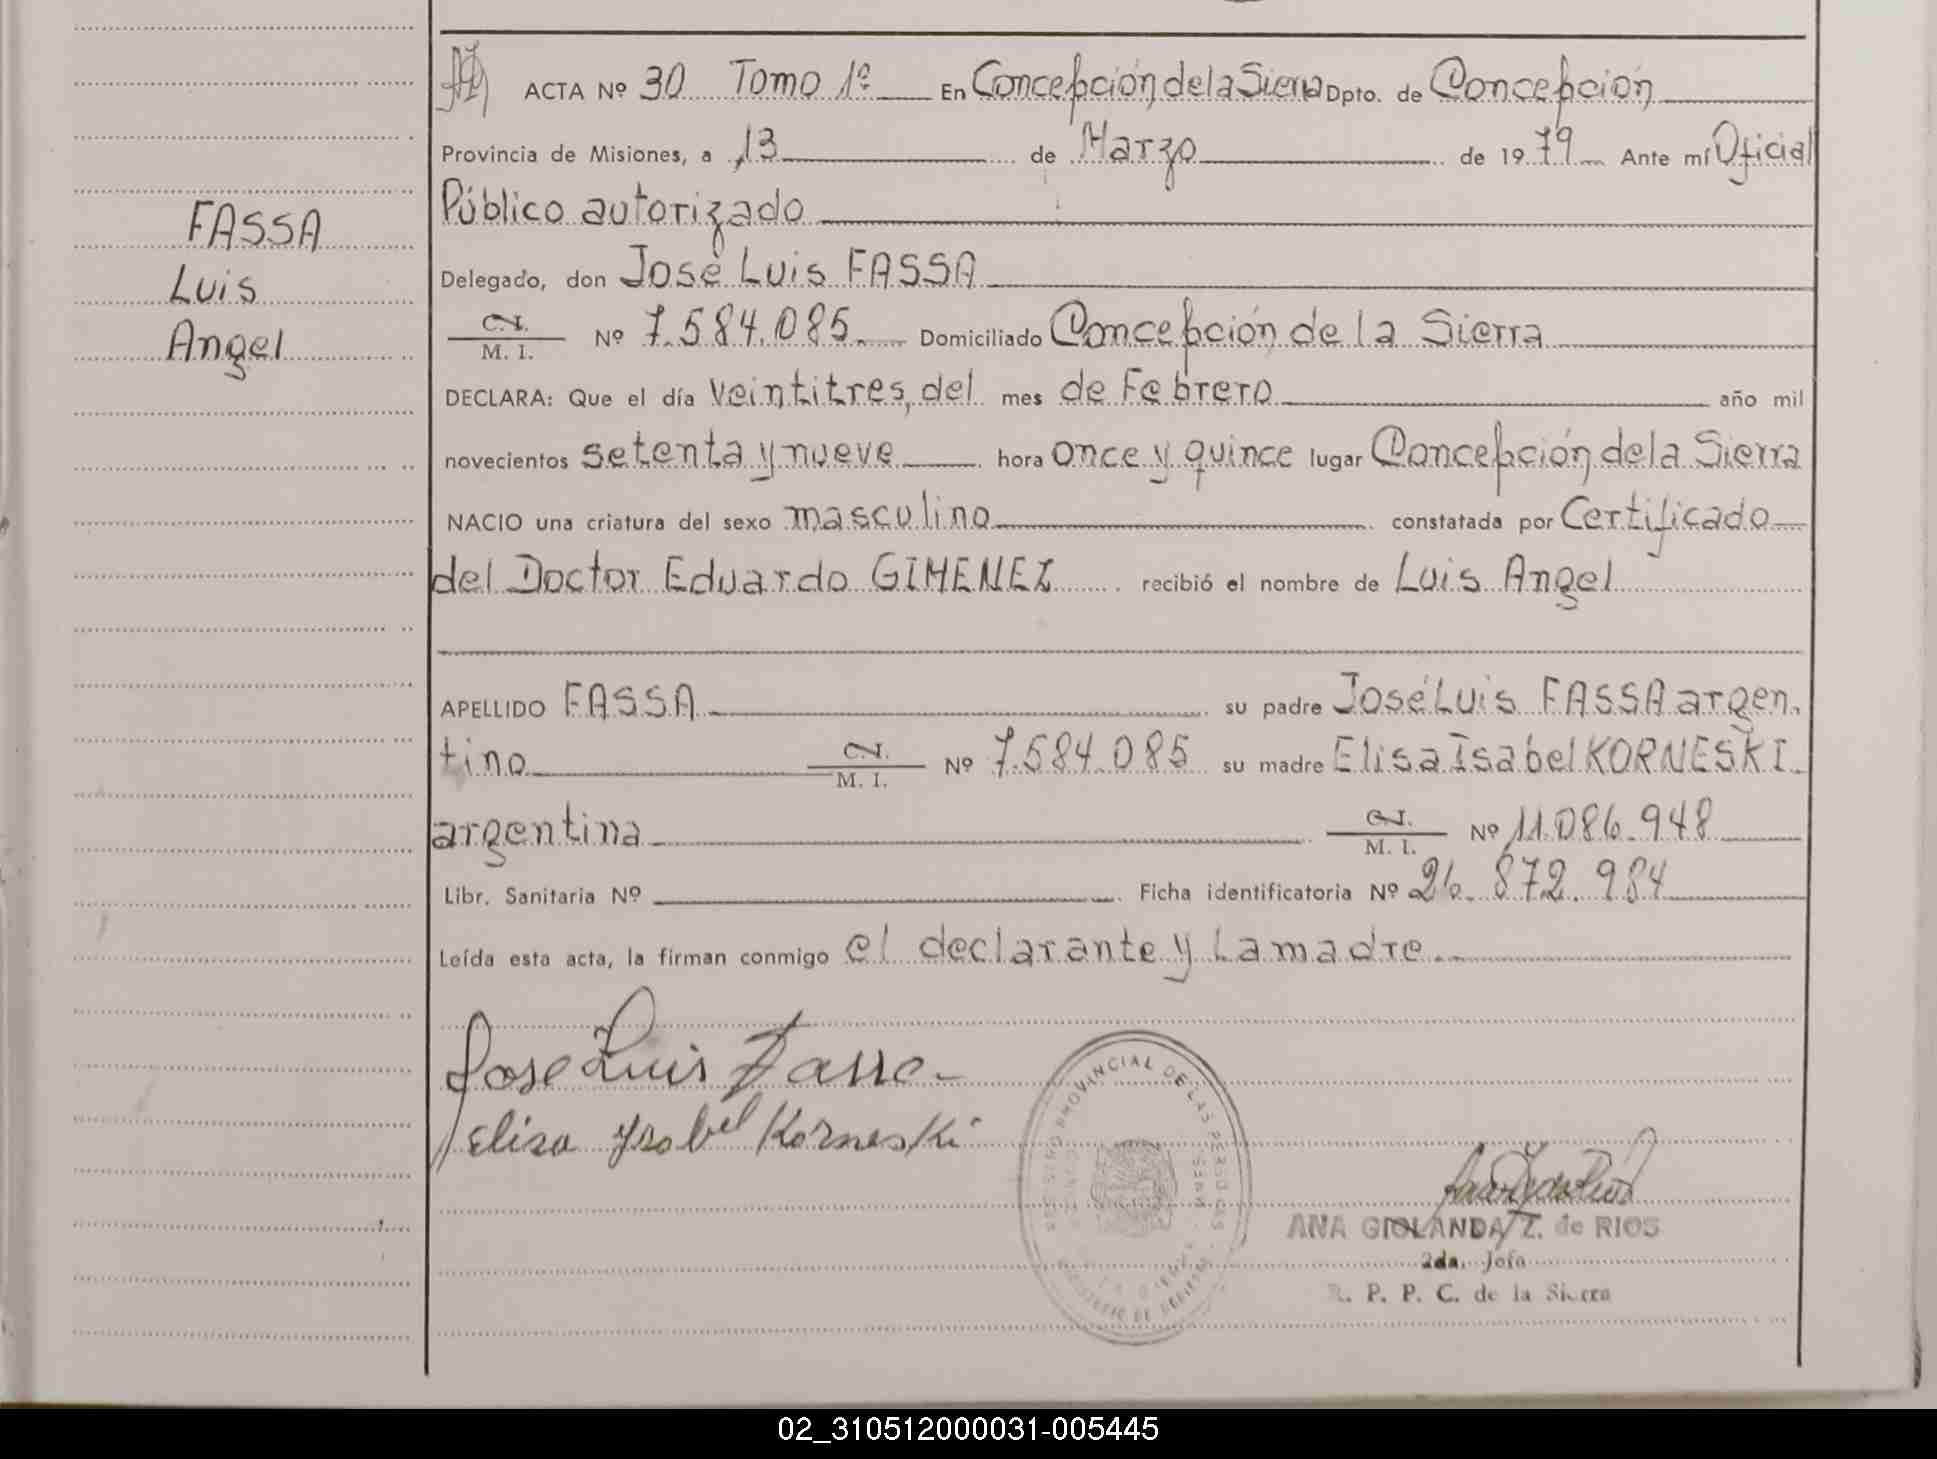 FASSA
Luis
Angel
ACTA Nº 30 Tomo 1º En Concepción de la Sierra Dpto. de Concepción
Provincia de Misiones, a 13 de Marzo de 1979 Ante mí Oficial
Público autorizado
Delegado, don José Luis FASSA
C.I. M. I. Nº 7.584.085. Domiciliado Concepción de la Sierra
DECLARA: Que el día veintitres, del mes de Febrero año mil
novecientos setenta y nueve hora once y quince lugar Concepción de la Sierra
NACIO una criatura del sexo masculino constatada por Certificado
del Doctor Eduardo GIMENEZ recibió el nombre de Luis Angel
APELLIDO FASSA su padre José Luis FASSA argen-
tino C.I. M. I. Nº 7.584.085 su madre Elisa Isabel KORNESKI
argentina C.I. M. I. Nº 11.086.948
Libr. Sanitaria Nº Ficha identificatoria Nº 26.872.984
Leída esta acta, la firman conmigo el declarante y La madre.
Jose Luis Fassa
Elisa Ysabel Korneski
PROVINCIAL DE LAS PERSONAS
ANA GIOLANDA Z. de RIOS
2da. Jefa
R. P. P. C. de la Sierra
02_310512000031-005445